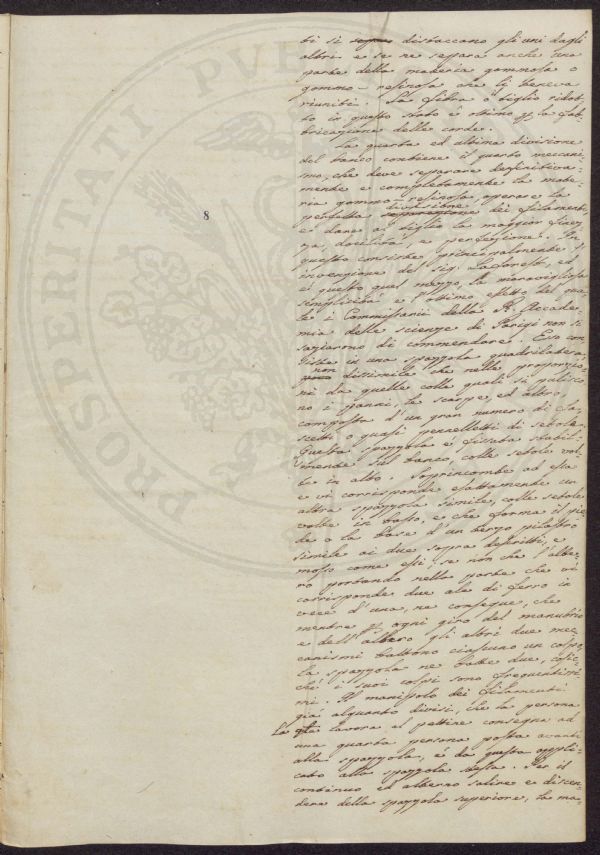 ti si distaccano gli uni dagli
altri e se ne separa anche una
parte della materia gommosa o
gommo-resinosa che li teneva
riuniti. La fibra o tiglio ridot-
to in questo stato è ottimo p la fab-
bricazione delle corde.
La quarta ed ultima divisione
del banco contiene il quarto meccani-
smo, che deve separare definitiva-
mente e completamente la mate-
ria gommo-resinosa operare la
divisione
perfetta separazione dei filamenti
e dare al tiglio la maggior finez-
za, docilità, e perfezione. In
questo consiste principalmente l'
invenzione del sig. Laforest, ed
è questo quel mezzo, la maravigliosa
semplicità e l'ottimo effetto del qua-
le i Commissarii della R. Accade-
mia delle scienze di Parigi non si
saziarono di commendare. Esso con-
siste in una spazzola quadrilatera,
non
poco dissimile che nelle proporzio-
ni da quelle colle quali si pulisco-
no i panni, le scarpe, ed altro,
composta d'un gran numero di fa-
scetti o quasi pennelletti di setole.
Questa spazzola è fissata stabil-
mente sul banco, colle setole vol-
te in alto. Soprincombe ad essa
e vi corrisponde esattamente un'
altra spazzola simile, colle setole
volte in basso, e che forma il pie-
de o la base d'un terzo pilastro
simile ai due sopra descritti, e
mosso come essi; se non che l'albe-
ro portando nella parte che vi
corrisponde due ale di ferro in
vece d'una, ne consegue, che
mentre p ogni giro del manubrio
e dell'albero gli altri due mec-
canismi battono ciascuno un colpo,
la spazzola ne batte due, cosic-
chè i suoi colpi sono frequentissi-
mi. Il manipolo dei filamenti
già alquanto divisi, che la persona
la qle lavora al pettine consegna ad
una quarta persona posta avanti
alla spazzola, è da questa appli-
cato alla spazzola stessa. Per il
continuo ed alterno salire e discen-
dere della spazzola superiore, la ma-
8
PROSPERITATI PUB